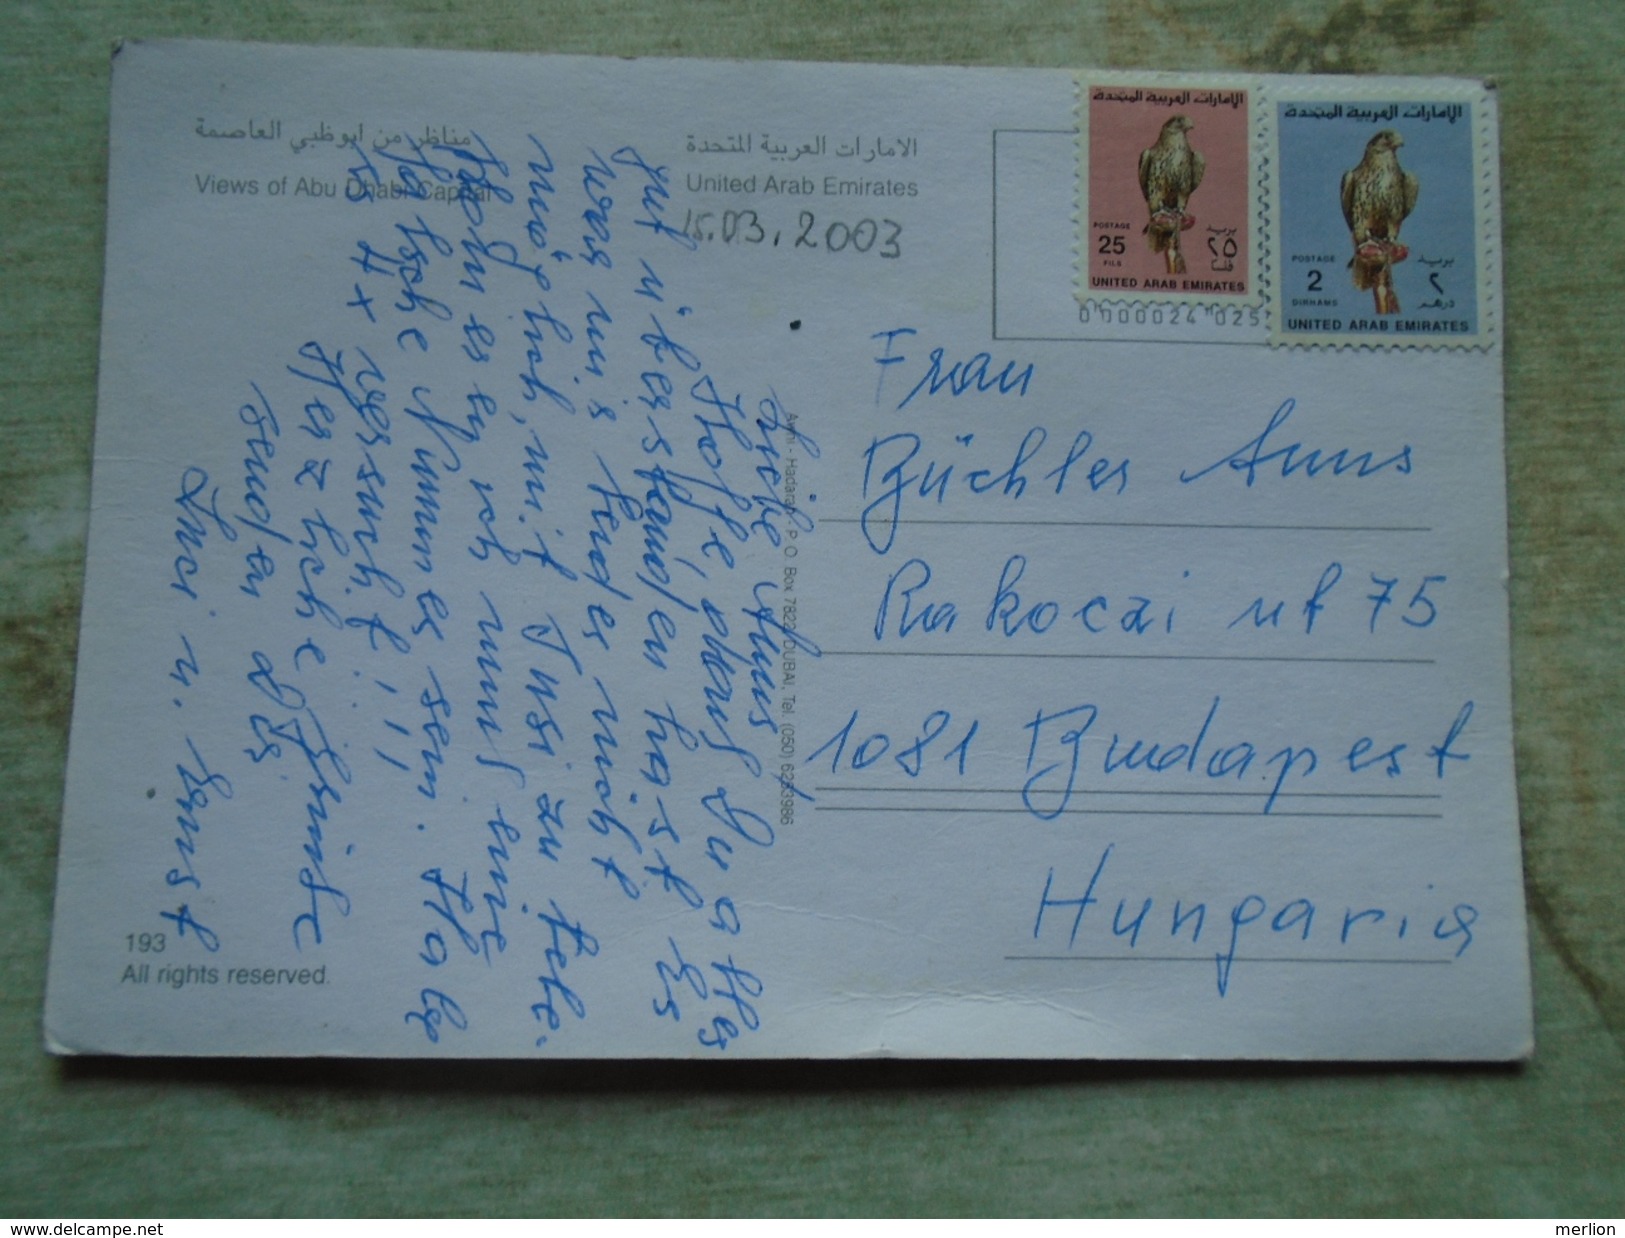 مناظر من ابوظبي العاصمة
Views of Abu Dhabi Capital
الامارات العربية المتحدة
United Arab Emirates
15.03.2003
الإمارات العربية المتحدة
POSTAGE
25
FILS
بريد
٢٥
فلس
UNITED ARAB EMIRATES
الإمارات العربية المتحدة
POSTAGE
2
DIRHAMS
بريد
٢
درهم
UNITED ARAB EMIRATES
0000024 025
Frau
Büchler Anus
Rakoczi ut 75
1081 Budapest
Hungaria
P.O. Box 7822 DUBAI, Tel. (050) 6283986
Liebe Anus
Hoffe, dass Du alles
gut überstanden hast. Es
war uns leider nicht
möglich, mit Tusi zu tele-
es muß eine
falsche Nummer sein. Habe
es 4x versucht!!!
Herzliche Grüße
senden Dir
Inci u. Ernst
193
All rights reserved.
merlion
www.delcampe.net